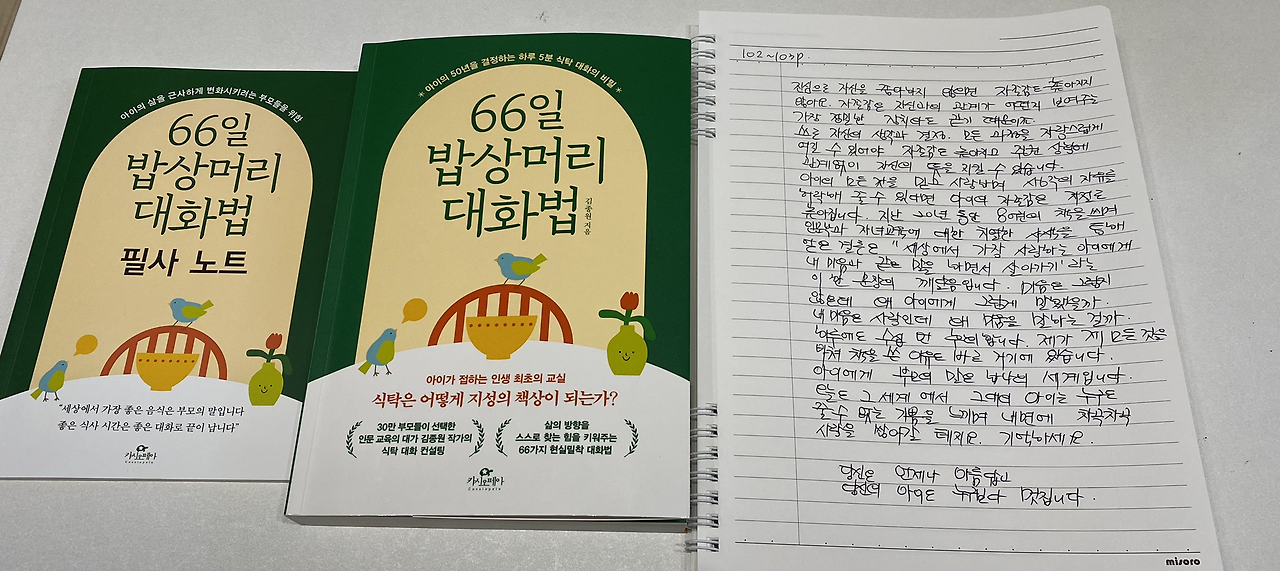 아이의 삶을 근사하게 변화시키려는 부모들을 위한
66일
밥상머리
대화법
필사 노트
"세상에서 가장 좋은 음식은 부모의 말입니다
좋은 식사 시간은 좋은 대화로 끝이 납니다"
카시오페아
Cassiopeia
* 아이의 50년을 결정하는 하루 5분 식탁 대화의 비밀 *
66일
밥상머리
대화법
김종원 지음
아이가 접하는 인생 최초의 교실
식탁은 어떻게 지성의 책상이 되는가?
30만 부모들이 선택한
인문 교육의 대가 김종원 작가의
식탁 대화 컨설팅
삶의 방향을
스스로 찾는 힘을 키워주는
66가지 현실밀착 대화법
카시오페아
Cassiopeia
102~103p
진심으로 자신을 좋아하지 않으면 자존감도 높아지지
않아요. 자존감은 자신과의 관계가 어떤지 보여주는
가장 정밀한 지 같기 때문이죠.
스스로 자신의 생각과 결정, 모든 과정을 자랑스럽게
여길 수 있어야 자존감도 높아지고 주변 상황에
관계없이 자신의 을 지킬 수 있습니다.
아이의 모든 것을 믿고 사랑하며 생각의 자유를
허락해 줄 수 있다면 아이의 자존감은 저절로
높아집니다. 지난 20년 동안 80여권의 책을 쓰며
인문학과 자녀교육에 대한 치열한 사색을 통해
얻은 결론은 "세상에서 가장 사랑하는 아이에게
내 마음과 같은 말을 하면서 살아가기" 라는
이 한 문장의 깨달음입니다. 마음은 그렇지
않은데 왜 아이에게 그렇게 말했을까.
내 마음은 사랑인데 왜 미움을 말하는 걸까.
하루에도 수십 번 후회합니다. 제가 제 모든 것을
바쳐 책을 쓴 이유도 바로 거기에 있습니다.
아이에게 부모의 말은 하나의 세계입니다.
오늘도 그 세계에서 그대의 아이는 누구도
줄 수 없는 기쁨을 느끼며 내면에 차곡차곡
사랑을 쌓아갈 테지요. 기억하세요.
당신은 언제나 아름답고
당신의 아이도 누구보다 멋집니다.
misoro